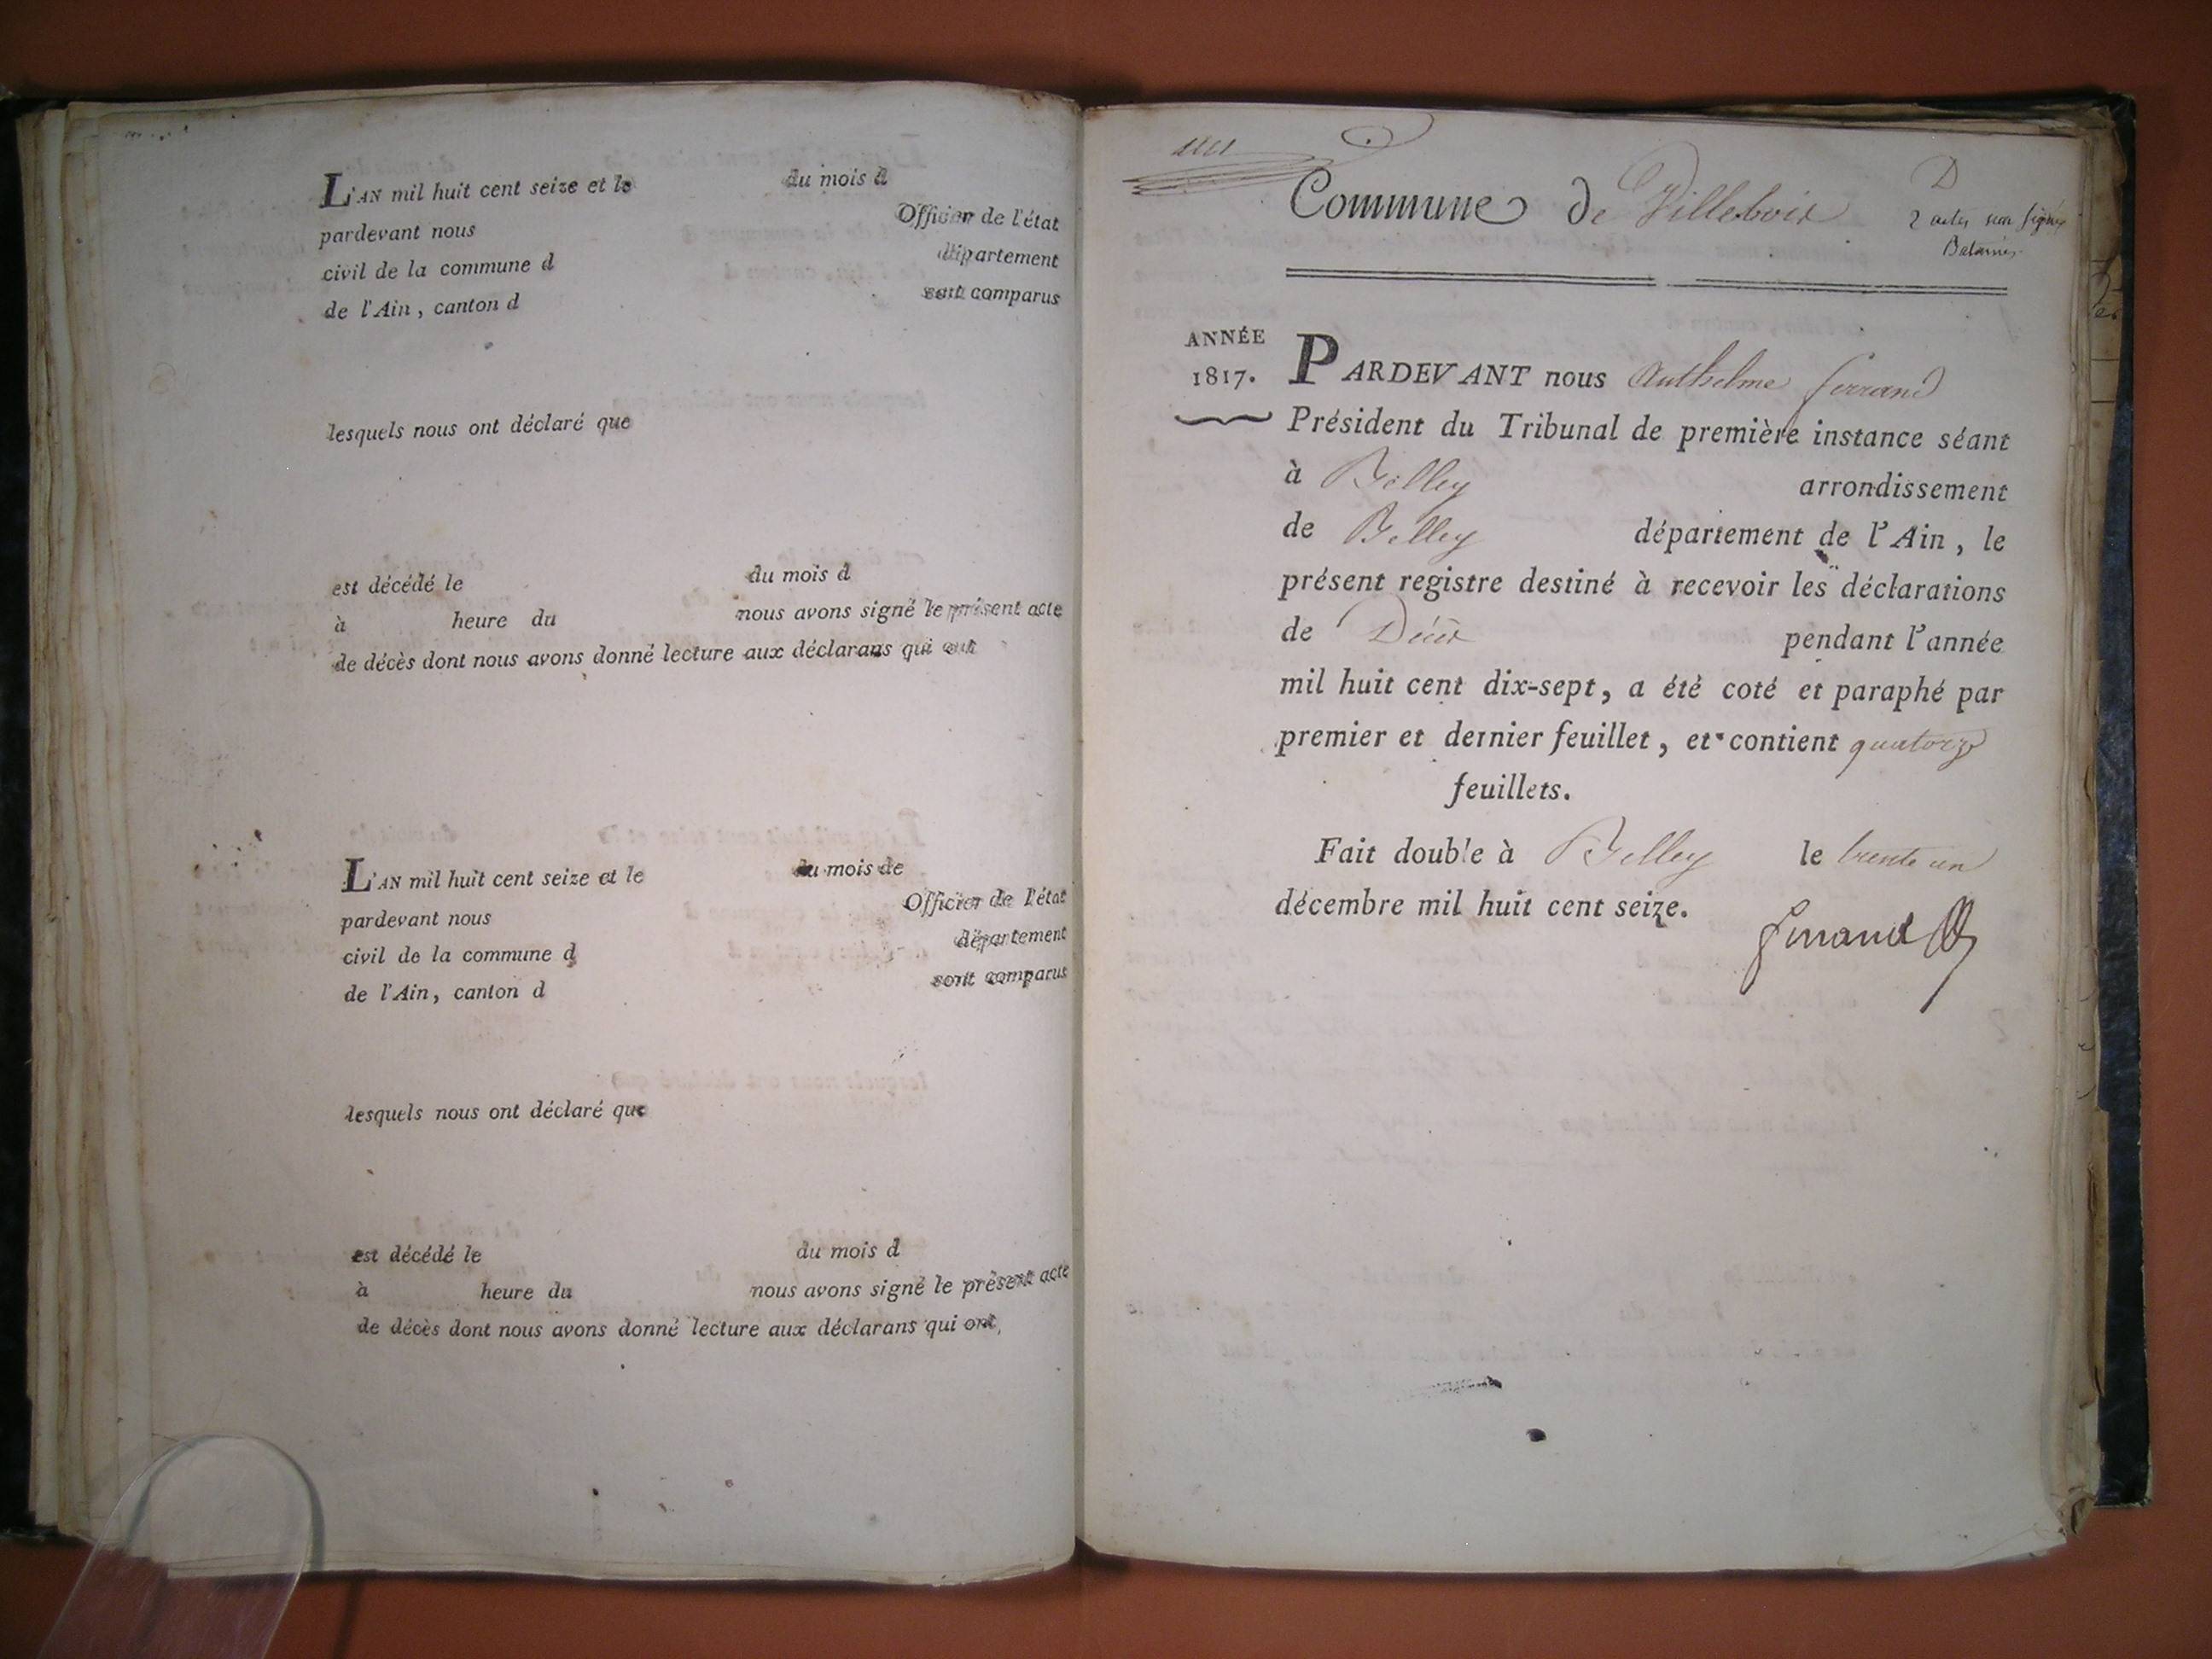 L'AN mil huit cent seize et le du mois d
pardevant nous Officier de l'état
civil de la commune d département
de l'Ain, canton d sont comparus
lesquels nous ont déclaré que
est décédé le du mois d
à heure du nous avons signé le présent acte
de décès dont nous avons donné lecture aux déclarans qui ont
L'AN mil huit cent seize et le du mois de
pardevant nous Officier de l'état
civil de la commune d département
de l'Ain, canton d sont comparus
lesquels nous ont déclaré que
est décédé le du mois d
à heure du nous avons signé le présent acte
de décès dont nous avons donné lecture aux déclarans qui ont,
Commune de Villebois
D
2 actes non signés
ANNÉE
1817.
PARDEVANT nous Anthelme ferrand
Président du Tribunal de première instance séant
à Belley arrondissement
de Belley département de l'Ain, le
présent registre destiné à recevoir les déclarations
de Décès pendant l'année
mil huit cent dix-sept, a été coté et paraphé par
premier et dernier feuillet, et contient quatorze
feuillets.
Fait double à Belley le trente un
décembre mil huit cent seize.
ferrand